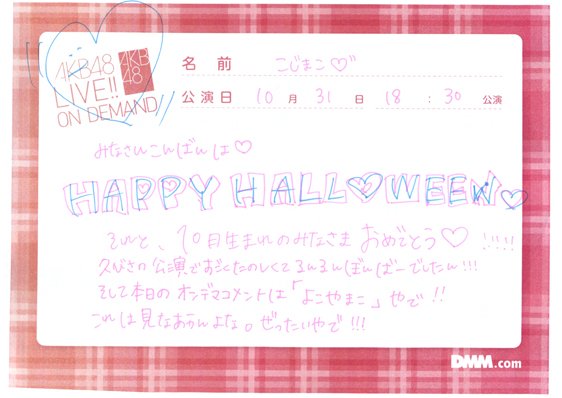 AKB48
LIVE!!
ON DEMAND
AKB
48
名 前 こじまこ♡♡
公演日 10 月 31 日 18 : 30 公演
みなさんこんばんは♡
HAPPY HALL♡WEEN♡
そいと、10月生まれのみなさま おめでとう♡ !!!!
久びさの公演で たのしくて るんるんぼんばーでしたん!!!
そして本日の オンデマコメントは「よこやまこ」やで!!
これは見なあかんよな。ぜったいやで!!!
DMM.com